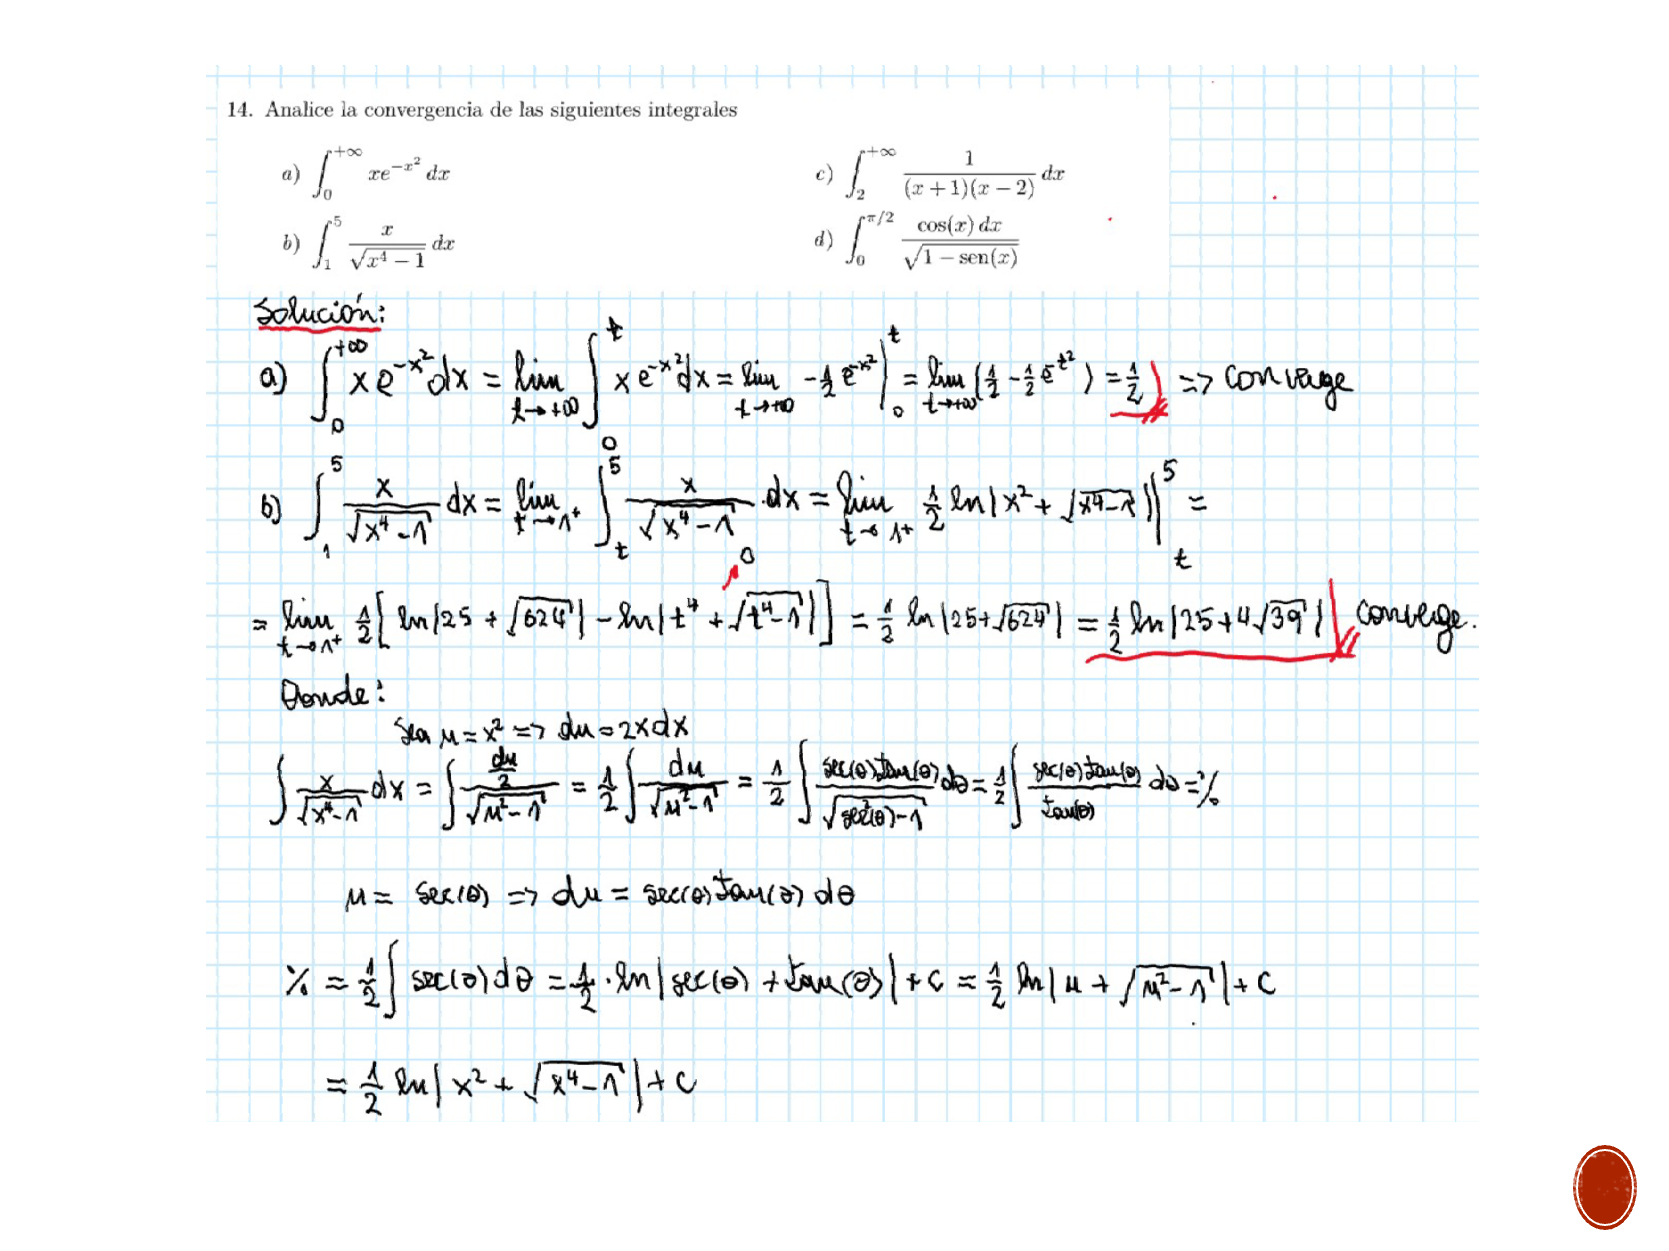 14. Analice la convergencia de las siguientes integrales
a) ∫_0^{+∞} xe^{-x^2} dx
c) ∫_2^{+∞} 1/((x + 1)(x − 2)) dx
b) ∫_1^5 x/√(x^4 − 1) dx
d) ∫_0^{π/2} cos(x) dx/√(1 − sen(x))
Solución:
a) ∫_0^{+∞} x e^{-x^2} dx = lim_{t→+∞} ∫_0^t x e^{-x^2} dx = lim_{t→+∞} -1/2 e^{-x^2} |_0^t = lim_{t→+∞} (1/2 - 1/2 e^{-t^2}) = 1/2 => converge
b) ∫_1^5 x/√(x^4-1) dx = lim_{t→1^+} ∫_t^5 x/√(x^4-1) dx = lim_{t→1^+} 1/2 ln|x^2 + √(x^4-1)| |_t^5 =
0
= lim_{t→1^+} 1/2 [ln|25 + √624| - ln|t^4 + √(t^4-1)|] = 1/2 ln|25+√624| = 1/2 ln|25+4√39| converge.
Donde:
Sea u = x^2 => du = 2xdx
∫ x/√(x^4-1) dx = ∫ (du/2)/√(u^2-1) = 1/2 ∫ du/√(u^2-1) = 1/2 ∫ sec(θ)tan(θ)/√(sec^2(θ)-1) dθ = 1/2 ∫ sec(θ)tan(θ)/tan(θ) dθ = %
u = sec(θ) => du = sec(θ)tan(θ) dθ
% = 1/2 ∫ sec(θ) dθ = 1/2 · ln|sec(θ) + tan(θ)| + c = 1/2 ln|u + √(u^2-1)| + c
= 1/2 ln|x^2 + √(x^4-1)| + c